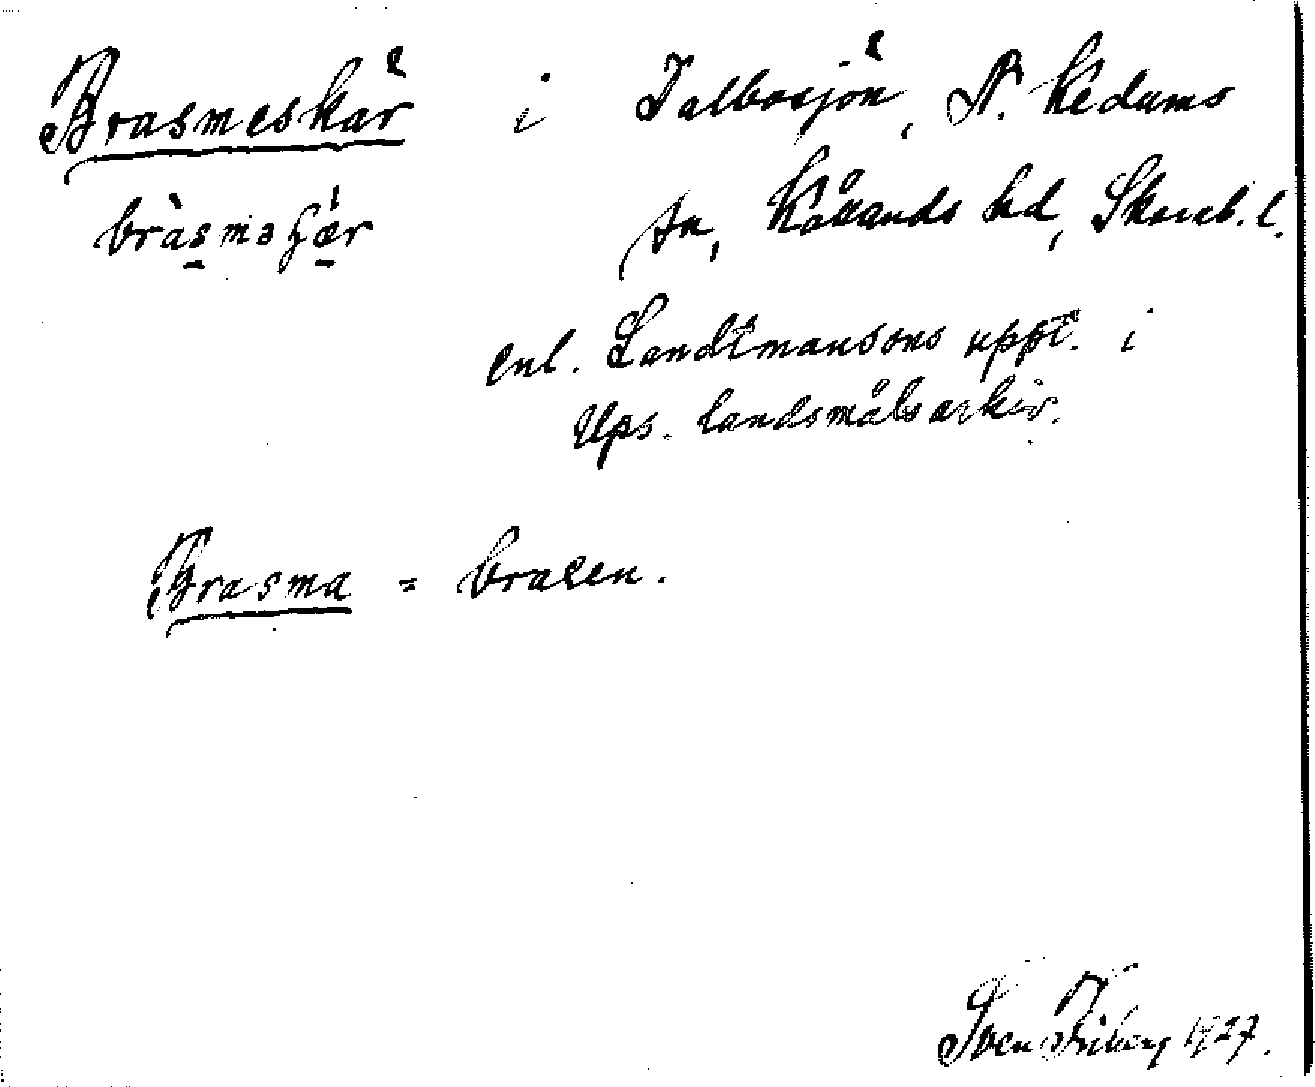 Brasmeskär i Talbosjön, N. Kedums
bràsməʃǽr sn, Kållands hd, Skarab. l.
enl. Landtmansons uppt. i
Ups. landsmålsarkiv.
Brasma = braxen.
Sven Friberg 1927.